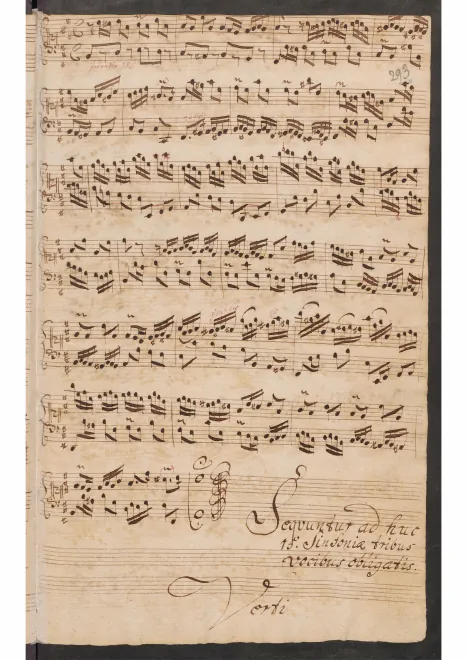 293
Seqvuntur ad huc
15. Sinfoniæ tribus
vocibus obligatis.
Verti